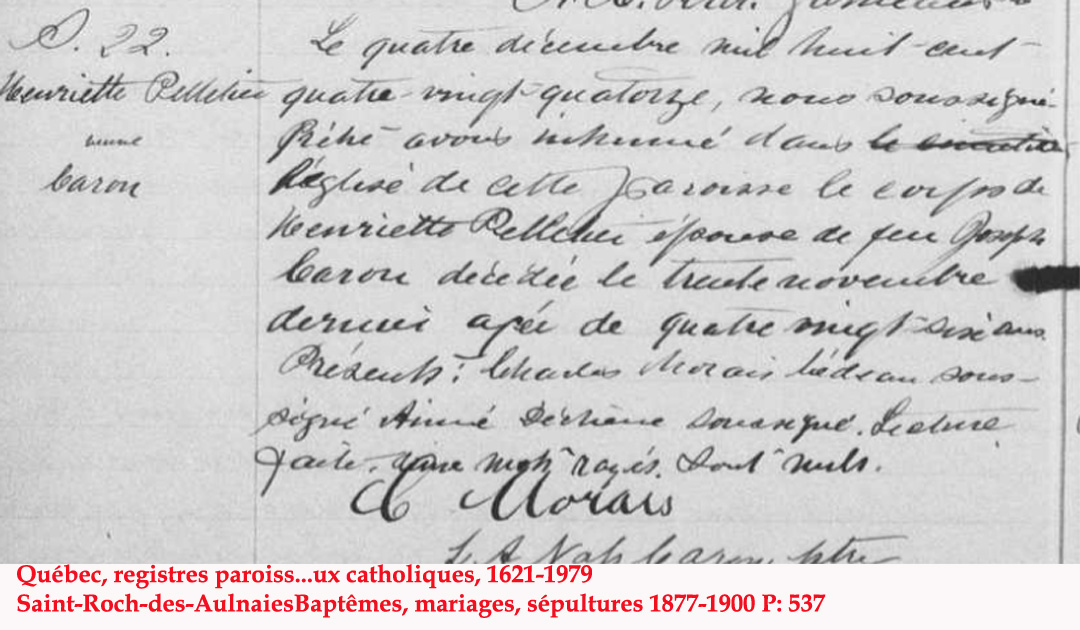 S. 22.
Henriette Pelletier
veuve
Caron
Le quatre décembre mil huit-cent-
quatre-vingt-quatorze, nous soussigné
Prêtre avons inhumé dans le cimetière
l'église de cette paroisse le corps de
Henriette Pelletier épouse de feu Joseph
Caron décédée le trente novembre
dernier agée de quatre vingt-six ans.
Présents: Charles Morais bédeau sous-
signé Aimé Déchène soussigné. Lecture
faite. mots rayés. Sont nuls.
C Morais
Caron, ptre
Québec, registres paroiss...ux catholiques, 1621-1979
Saint-Roch-des-AulnaiesBaptêmes, mariages, sépultures 1877-1900 P: 537